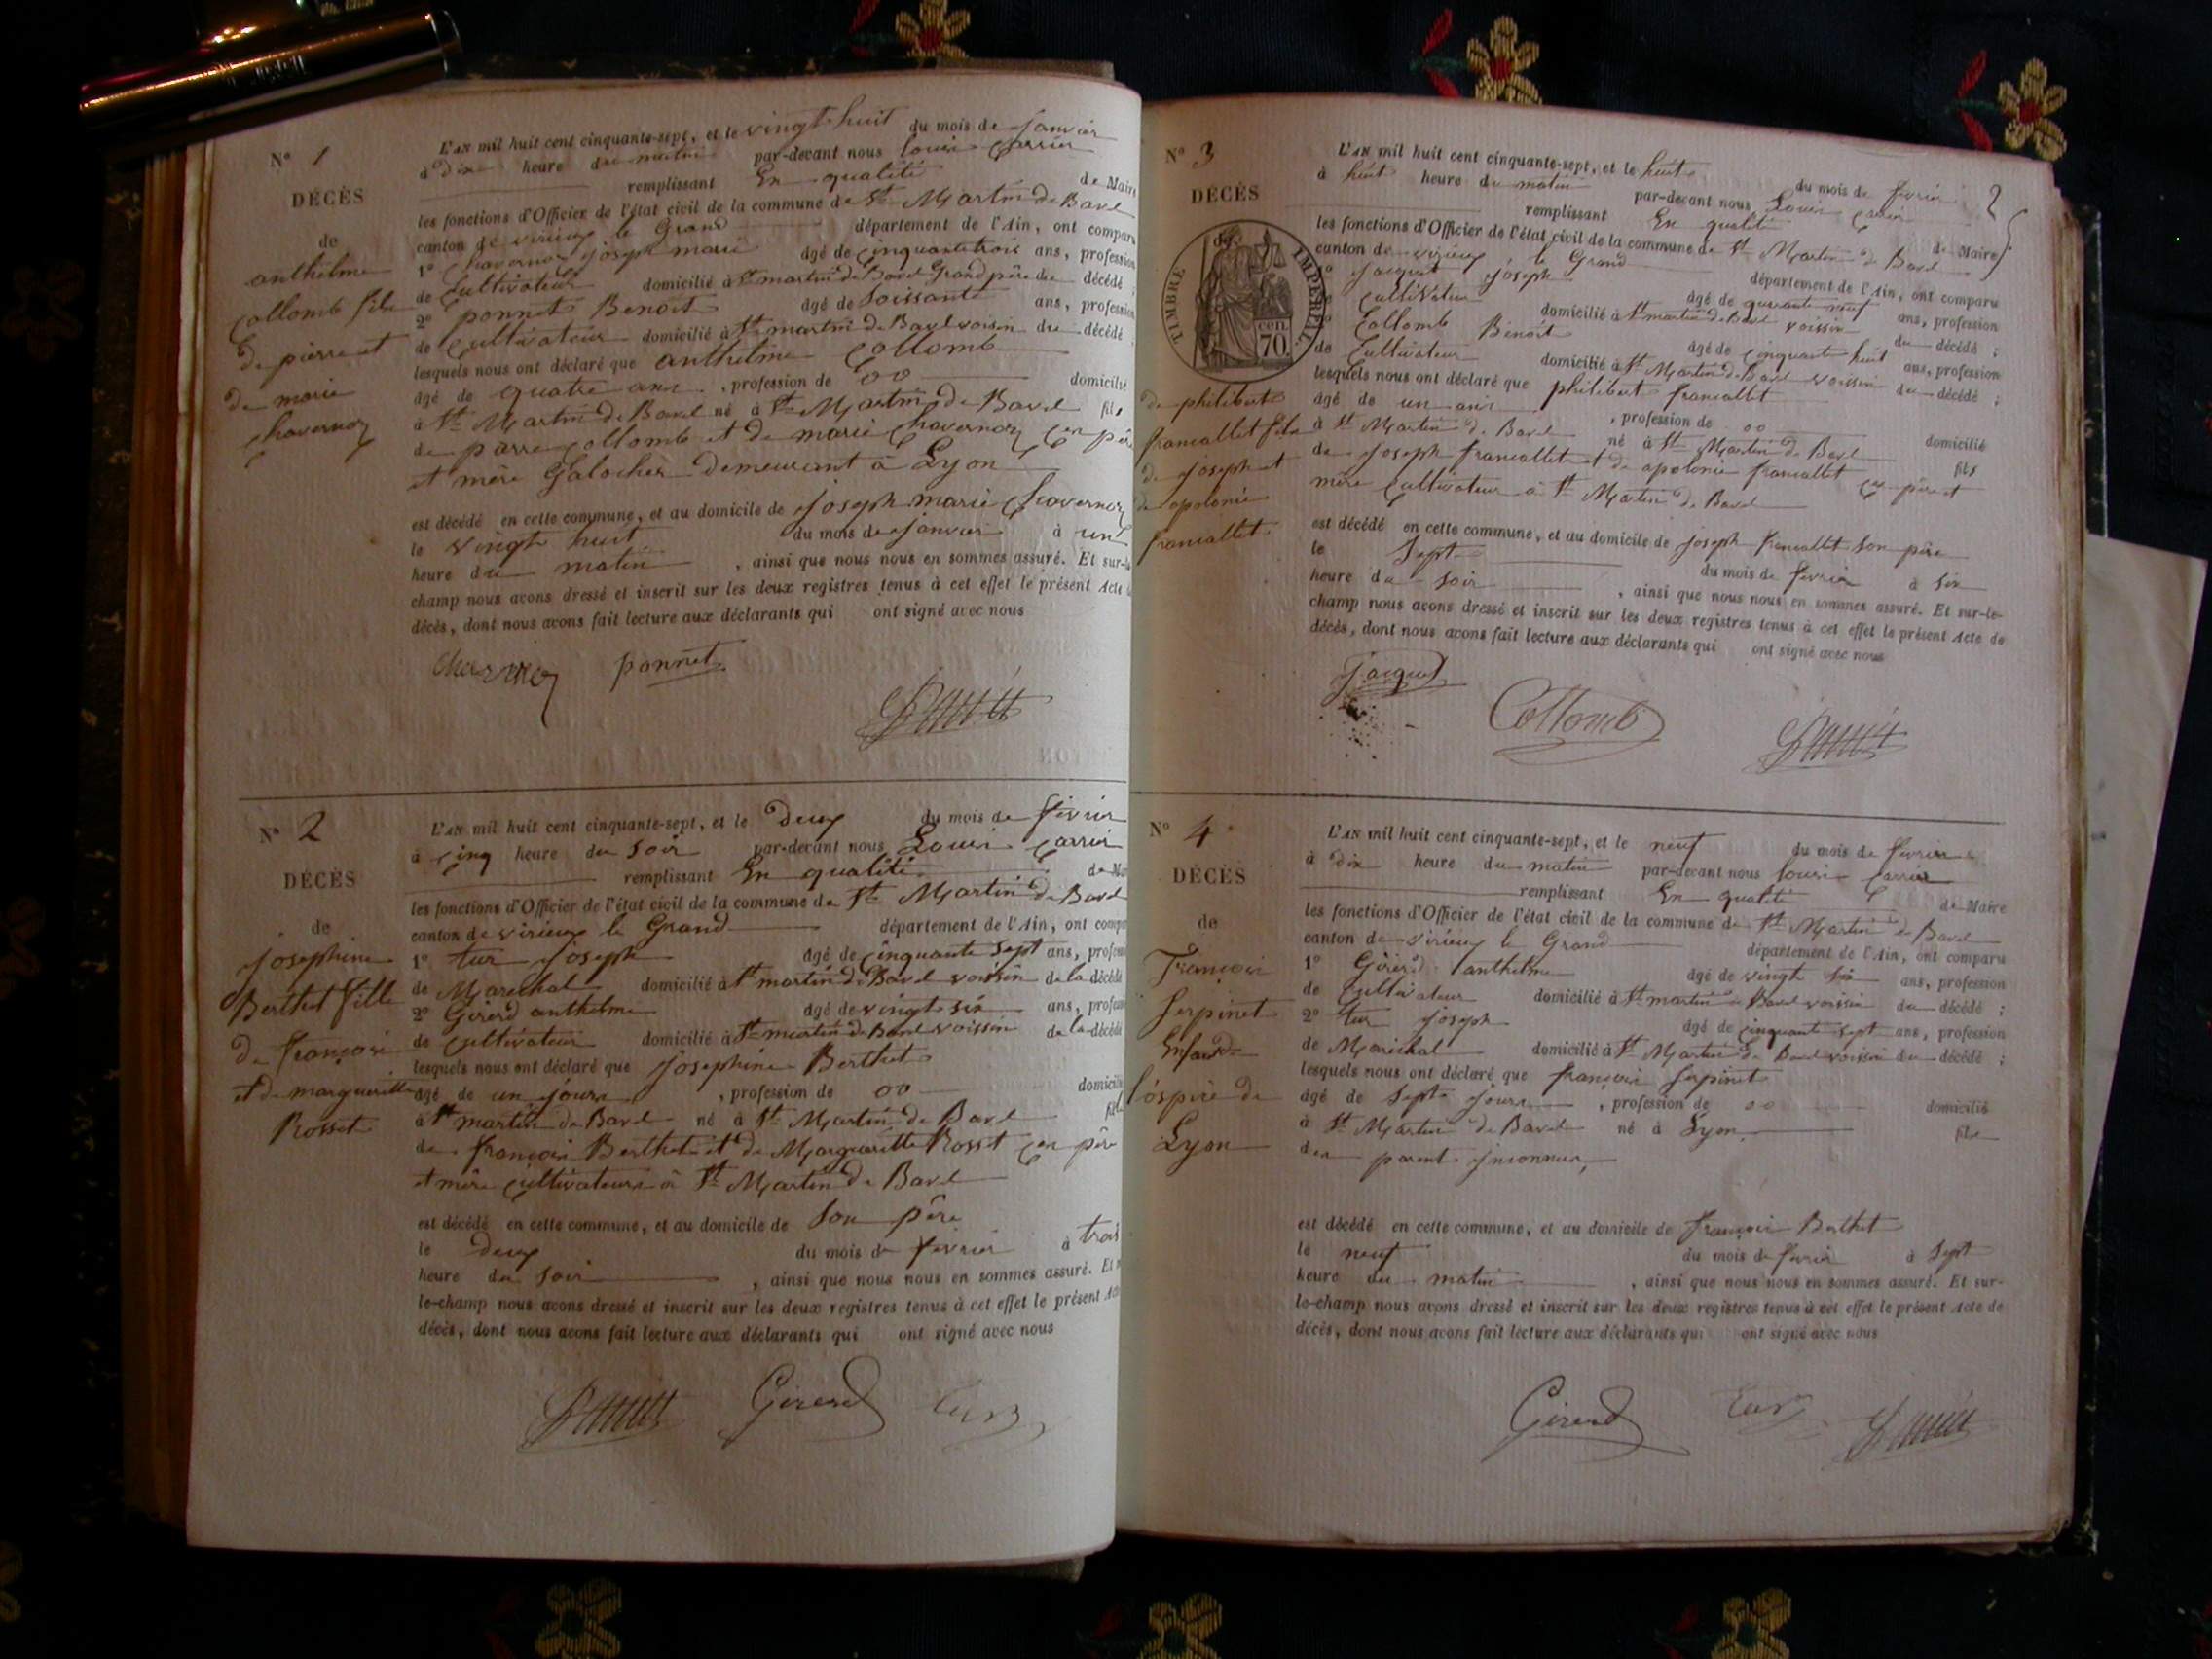 N° 1
DÉCÈS
de
anthelme
Collomb fils
de pierre et
de marie
Chavernoz
L'AN mil huit cent cinquante-sept, et le vingt huit du mois de janvier
à dix heure du matin par-devant nous louis Carrier
remplissant En qualité de Maire
les fonctions d'Officier de l'état civil de la commune de St Martin de Bavel
canton de virieux le Grand département de l'Ain, ont comparu
1° Chavernoz joseph marie âgé de cinquante trois ans, profession
de Cultivateur domicilié à St martin de Bavel Grand père du décédé ;
2° ponnet Benoit âgé de Soissante ans, profession
de Cultivateur domicilié à St martin de Bavel voisin du décédé ;
lesquels nous ont déclaré que anthelme Collomb
âgé de quatre ans , profession de 00 domicilié
à St Martin de Bavel né à St Martin de Bavel fils
de pierre Collomb et de marie Chavernoz Ces père
et mère Galocher demeurant à Lyon
est décédé en cette commune, et au domicile de joseph marie Chavernoz
le vingt huit du mois de janvier à une
heure du matin , ainsi que nous nous en sommes assuré. Et sur-le
champ nous avons dressé et inscrit sur les deux registres tenus à cet effet le présent Acte de
décès, dont nous avons fait lecture aux déclarants qui ont signé avec nous
ponnet
N° 2
DÉCÈS
de
josephine
Berthet fille
de françois
et de marguerite
Rosset
L'AN mil huit cent cinquante-sept, et le deux du mois de février
à cinq heure du soir par-devant nous Louis Carrier
remplissant En qualité de Maire
les fonctions d'Officier de l'état civil de la commune de St Martin de Bavel
canton de virieux le Grand département de l'Ain, ont comparu
1° tur joseph âgé de cinquante sept ans, profession
de Marechal domicilié à St martin de Bavel voissin de la décédé
2° Girerd anthelme âgé de vingt six ans, profession
de Cultivateur domicilié à St martin de Bavel voissin de la décédé
lesquels nous ont déclaré que josephine Berthet
âgé de un jours , profession de 00 domicilié
à St martin de Bavel né à St Martin de Bavel fille
de françois Berthet et de Marguerite Rosset Ces père
et mère Cultivateurs à St Martin de Bavel
est décédé en cette commune, et au domicile de Son père
le deux du mois de février à trois
heure du soir , ainsi que nous nous en sommes assuré. Et sur-
le-champ nous avons dressé et inscrit sur les deux registres tenus à cet effet le présent Acte
décès, dont nous avons fait lecture aux déclarants qui ont signé avec nous
Girerd Tur
2
N° 3
DÉCÈS
de
TIMBRE IMPERIAL
70 cen.
de philibert
francallet fils
de joseph et
de apolonie
francallet
L'AN mil huit cent cinquante-sept, et le huit du mois de fevrier
à huit heure du matin par-devant nous Louis Carrier
remplissant En qualité de Maire
les fonctions d'Officier de l'état civil de la commune de St Martin de Bavel
canton de virieux le Grand département de l'Ain, ont comparu
1° jacquet joseph âgé de quarante neuf ans, profession
de Cultivateur domicilié à St martin de Bavel voissin du décédé ;
2° Collomb Benoit âgé de cinquante huit ans, profession
de Cultivateur domicilié à St Martin de Bavel voissin du décédé ;
lesquels nous ont déclaré que philibert francallet
âgé de un ans , profession de 00 domicilié
à St Martin de Bavel né à St Martin de Bavel fils
de joseph francallet et de apolonie francallet Ces père et
mère Cultivateur à St Martin de Bavel
est décédé en cette commune, et au domicile de joseph francallet Son père
le Sept du mois de fevrier à six
heure du soir , ainsi que nous nous en sommes assuré. Et sur-le-
champ nous avons dressé et inscrit sur les deux registres tenus à cet effet le présent Acte de
décès, dont nous avons fait lecture aux déclarants qui ont signé avec nous
Jacquet Collomb
N° 4
DÉCÈS
de
François
Serpinet
Enfant de
l'ospice de
Lyon
L'AN mil huit cent cinquante-sept, et le neuf du mois de fevrier
à dix heure du matin par-devant nous louis Carrier
remplissant En qualité de Maire
les fonctions d'Officier de l'état civil de la commune de St Martin de Bavel
canton de virieux le Grand département de l'Ain, ont comparu
1° Girerd anthelme âgé de vingt six ans, profession
de Cultivateur domicilié à St martin de Bavel voissin du décédé ;
2° tur joseph âgé de cinquante sept ans, profession
de Marechal domicilié à St Martin de Bavel voissin du décédé ;
lesquels nous ont déclaré que françois Serpinet
âgé de Sept jours , profession de 00 domicilié
à St Martin de Bavel né à Lyon fils
des parent inconnus,
est décédé en cette commune, et au domicile de françois Berthet
le neuf du mois de fevrier à Sept
heure du matin , ainsi que nous nous en sommes assuré. Et sur-
le-champ nous avons dressé et inscrit sur les deux registres tenus à cet effet le présent Acte de
décès, dont nous avons fait lecture aux déclarants qui ont signé avec nous
Girerd Tur